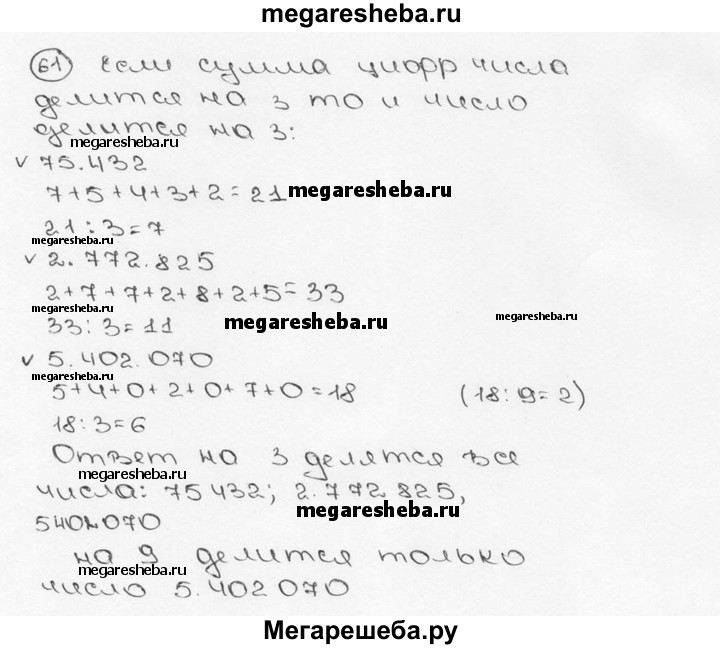 megaresheba.ru
61 Если сумма цифр числа
делится на 3 то и число
делится на 3:
megaresheba.ru
v 75.432
7+5+4+3+2=21 megaresheba.ru
21:3=7
megaresheba.ru
v 2.772.825
2+7+7+2+8+2+5=33
megaresheba.ru
33:3=11 megaresheba.ru megaresheba.ru
v 5.402.070
megaresheba.ru
5+4+0+2+0+7+0=18 (18:9=2)
18:3=6
Ответ на 3 делятся все
megaresheba.ru
числа: 75432; 2.772.825,
megaresheba.ru
5402070
на 9 делится только
megaresheba.ru
число 5.402070
Мегарешеба.ру